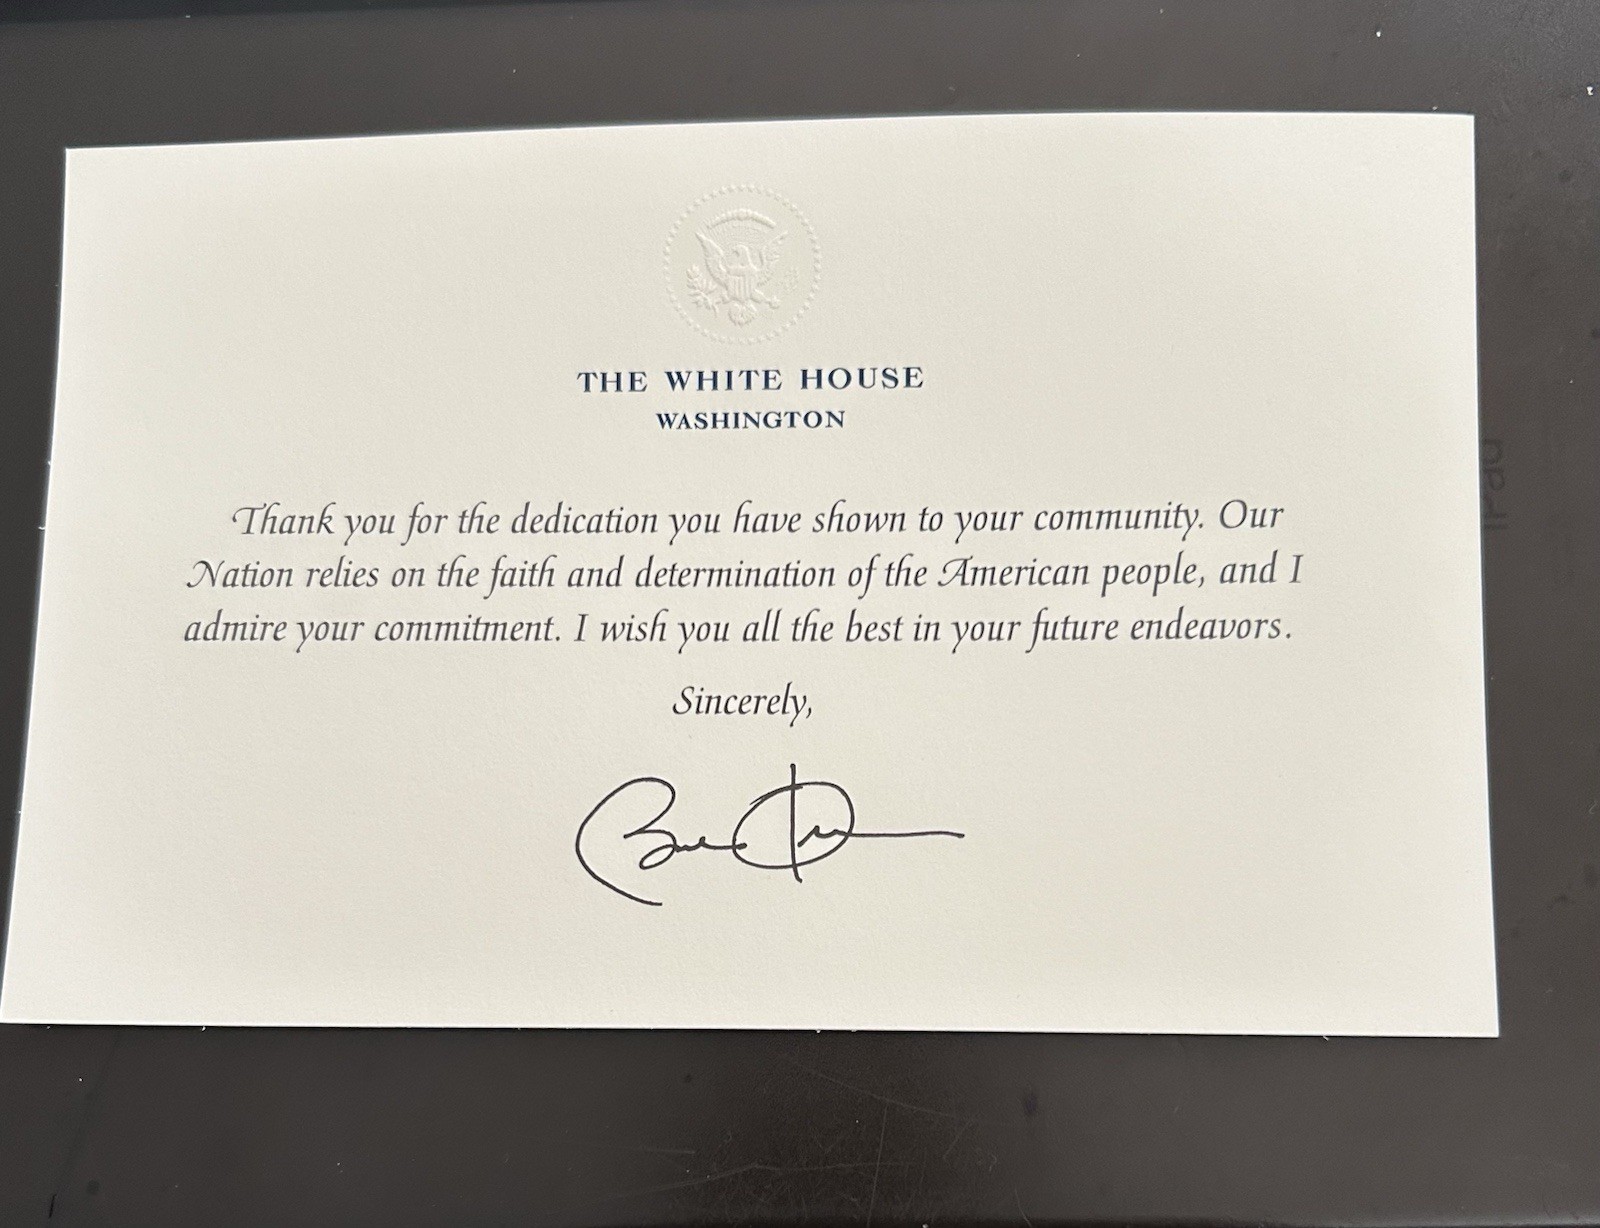 THE WHITE HOUSE
WASHINGTON
Thank you for the dedication you have shown to your community. Our
Nation relies on the faith and determination of the American people, and I
admire your commitment. I wish you all the best in your future endeavors.
Sincerely,
iPad